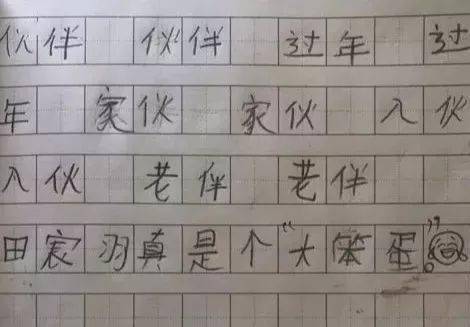 伙伴 伙伴 过年 过
年 家伙 家伙 入伙
入伙 老伴 老伴
田宸羽真是个“大笨蛋”!